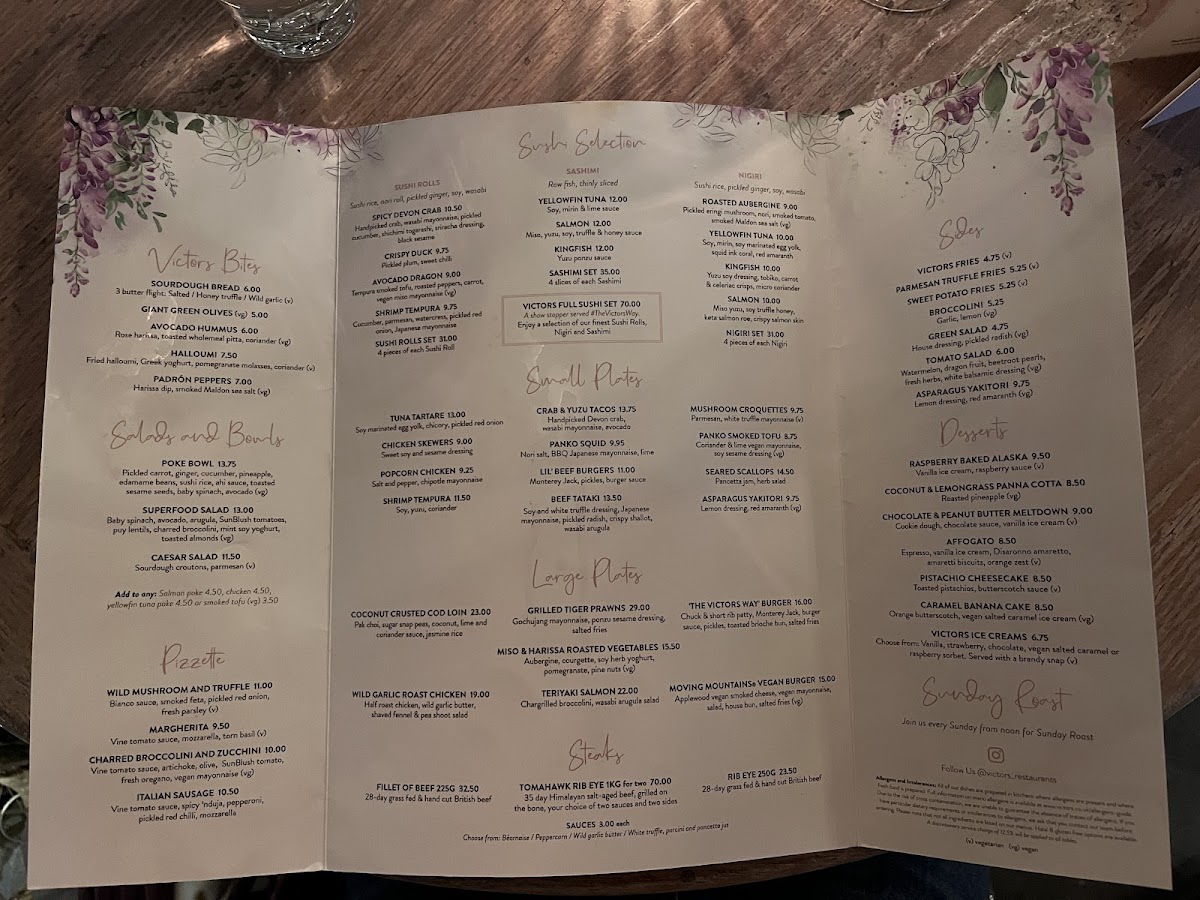 Victors Bites
SOURDOUGH BREAD 6.00
3 butter flight: Salted / Honey truffle / Wild garlic (v)
GIANT GREEN OLIVES (vg) 5.00
AVOCADO HUMMUS 6.00
Rose harissa, toasted wholemeal pitta, coriander (vg)
HALLOUMI 7.50
Fried halloumi, Greek yoghurt, pomegranate molasses, coriander (v)
PADRÓN PEPPERS 7.00
Harissa dip, smoked Maldon sea salt (vg)
Salads and Bowls
POKE BOWL 13.75
Pickled carrot, ginger, cucumber, pineapple,
edamame beans, sushi rice, ahi sauce, toasted
sesame seeds, baby spinach, avocado (vg)
SUPERFOOD SALAD 13.00
Baby spinach, avocado, arugula, SunBlush tomatoes,
puy lentils, charred broccolini, mint soy yoghurt,
toasted almonds (vg)
CAESAR SALAD 11.50
Sourdough croutons, parmesan (v)
Add to any: Salmon poke 4.50, chicken 4.50,
yellowfin tuna poke 4.50 or smoked tofu (vg) 3.50
Pizzette
WILD MUSHROOM AND TRUFFLE 11.00
Bianco sauce, smoked feta, pickled red onion,
fresh parsley (v)
MARGHERITA 9.50
Vine tomato sauce, mozzarella, torn basil (v)
CHARRED BROCCOLINI AND ZUCCHINI 10.00
Vine tomato sauce, artichoke, olive, SunBlush tomato,
fresh oregano, vegan mayonnaise (vg)
ITALIAN SAUSAGE 10.50
Vine tomato sauce, spicy 'nduja, pepperoni,
pickled red chilli, mozzarella
Sushi Selection
SUSHI ROLLS
Sushi rice, nori roll, pickled ginger, soy, wasabi
SPICY DEVON CRAB 10.50
Handpicked crab, wasabi mayonnaise, pickled
cucumber, shichimi togarashi, sriracha dressing,
black sesame
CRISPY DUCK 9.75
Pickled plum, sweet chilli
AVOCADO DRAGON 9.00
Tempura smoked tofu, roasted peppers, carrot,
vegan miso mayonnaise (vg)
SHRIMP TEMPURA 9.75
Cucumber, parmesan, watercress, pickled red
onion, Japanese mayonnaise
SUSHI ROLLS SET 31.00
4 pieces of each Sushi Roll
SASHIMI
Raw fish, thinly sliced
YELLOWFIN TUNA 12.00
Soy, mirin & lime sauce
SALMON 12.00
Miso, yuzu, soy, truffle & honey sauce
KINGFISH 12.00
Yuzu ponzu sauce
SASHIMI SET 35.00
4 slices of each Sashimi
VICTORS FULL SUSHI SET 70.00
A show stopper served #TheVictorsWay.
Enjoy a selection of our finest Sushi Rolls,
Nigiri and Sashimi
NIGIRI
Sushi rice, pickled ginger, soy, wasabi
ROASTED AUBERGINE 9.00
Pickled eringi mushroom, nori, smoked tomato,
smoked Maldon sea salt (vg)
YELLOWFIN TUNA 10.00
Soy, mirin, soy marinated egg yolk,
squid ink coral, red amaranth
KINGFISH 10.00
Yuzu soy dressing, tobiko, carrot
& celeriac crisps, micro coriander
SALMON 10.00
Miso yuzu, soy truffle honey,
keta salmon roe, crispy salmon skin
NIGIRI SET 31.00
4 pieces of each Nigiri
Small Plates
TUNA TARTARE 13.00
Soy marinated egg yolk, chicory, pickled red onion
CHICKEN SKEWERS 9.00
Sweet soy and sesame dressing
POPCORN CHICKEN 9.25
Salt and pepper, chipotle mayonnaise
SHRIMP TEMPURA 11.50
Soy, yuzu, coriander
CRAB & YUZU TACOS 13.75
Handpicked Devon crab,
wasabi mayonnaise, avocado
PANKO SQUID 9.95
Nori salt, BBQ Japanese mayonnaise, lime
LIL' BEEF BURGERS 11.00
Monterey Jack, pickles, burger sauce
BEEF TATAKI 13.50
Soy and white truffle dressing, Japanese
mayonnaise, pickled radish, crispy shallot,
wasabi arugula
MUSHROOM CROQUETTES 9.75
Parmesan, white truffle mayonnaise (v)
PANKO SMOKED TOFU 8.75
Coriander & lime vegan mayonnaise,
soy sesame dressing (vg)
SEARED SCALLOPS 14.50
Pancetta jam, herb salad
ASPARAGUS YAKITORI 9.75
Lemon dressing, red amaranth (vg)
Large Plates
COCONUT CRUSTED COD LOIN 23.00
Pak choi, sugar snap peas, coconut, lime and
coriander sauce, jasmine rice
GRILLED TIGER PRAWNS 29.00
Gochujang mayonnaise, ponzu sesame dressing,
salted fries
'THE VICTORS WAY' BURGER 16.00
Chuck & short rib patty, Monterey Jack, burger
sauce, pickles, toasted brioche bun, salted fries
MISO & HARISSA ROASTED VEGETABLES 15.50
Aubergine, courgette, soy herb yoghurt,
pomegranate, pine nuts (vg)
WILD GARLIC ROAST CHICKEN 19.00
Half roast chicken, wild garlic butter,
shaved fennel & pea shoot salad
TERIYAKI SALMON 22.00
Chargrilled broccolini, wasabi arugula salad
MOVING MOUNTAINS® VEGAN BURGER 15.00
Applewood vegan smoked cheese, vegan mayonnaise,
salad, house bun, salted fries (vg)
Steaks
FILLET OF BEEF 225G 32.50
28-day grass fed & hand cut British beef
TOMAHAWK RIB EYE 1KG for two 70.00
35 day Himalayan salt-aged beef, grilled on
the bone, your choice of two sauces and two sides
RIB EYE 250G 23.50
28-day grass fed & hand cut British beef
SAUCES 3.00 each
Choose from: Béarnaise / Peppercorn / Wild garlic butter / White truffle, porcini and pancetta jus
Sides
VICTORS FRIES 4.75 (v)
PARMESAN TRUFFLE FRIES 5.25 (v)
SWEET POTATO FRIES 5.25 (v)
BROCCOLINI 5.25
Garlic, lemon (vg)
GREEN SALAD 4.75
House dressing, pickled radish (vg)
TOMATO SALAD 6.00
Watermelon, dragon fruit, beetroot pearls,
fresh herbs, white balsamic dressing (vg)
ASPARAGUS YAKITORI 9.75
Lemon dressing, red amaranth (vg)
Desserts
RASPBERRY BAKED ALASKA 9.50
Vanilla ice cream, raspberry sauce (v)
COCONUT & LEMONGRASS PANNA COTTA 8.50
Roasted pineapple (vg)
CHOCOLATE & PEANUT BUTTER MELTDOWN 9.00
Cookie dough, chocolate sauce, vanilla ice cream (v)
AFFOGATO 8.50
Espresso, vanilla ice cream, Disaronno amaretto,
amaretti biscuits, orange zest (v)
PISTACHIO CHEESECAKE 8.50
Toasted pistachios, butterscotch sauce (v)
CARAMEL BANANA CAKE 8.50
Orange butterscotch, vegan salted caramel ice cream (vg)
VICTORS ICE CREAMS 6.75
Choose from: Vanilla, strawberry, chocolate, vegan salted caramel or
raspberry sorbet. Served with a brandy snap (v)
Sunday Roast
Join us every Sunday from noon for Sunday Roast
Follow Us @victors_restaurants
Allergens and Intolerances: All of our dishes are prepared in kitchens where allergens are present and where
fresh food is prepared. Full information on menu allergens is available at www.victors.co.uk/allergens-guide.
Due to the risk of cross contamination, we are unable to guarantee the absence of traces of allergens. If you
have particular dietary requirements or preferences to allergens, we ask that you contact our team before
ordering. Please note that not all ingredients are listed on our menus. Halal & gluten free options are available.
A discretionary service charge of 12.5% will be applied to all tables.
(v) vegetarian (vg) vegan